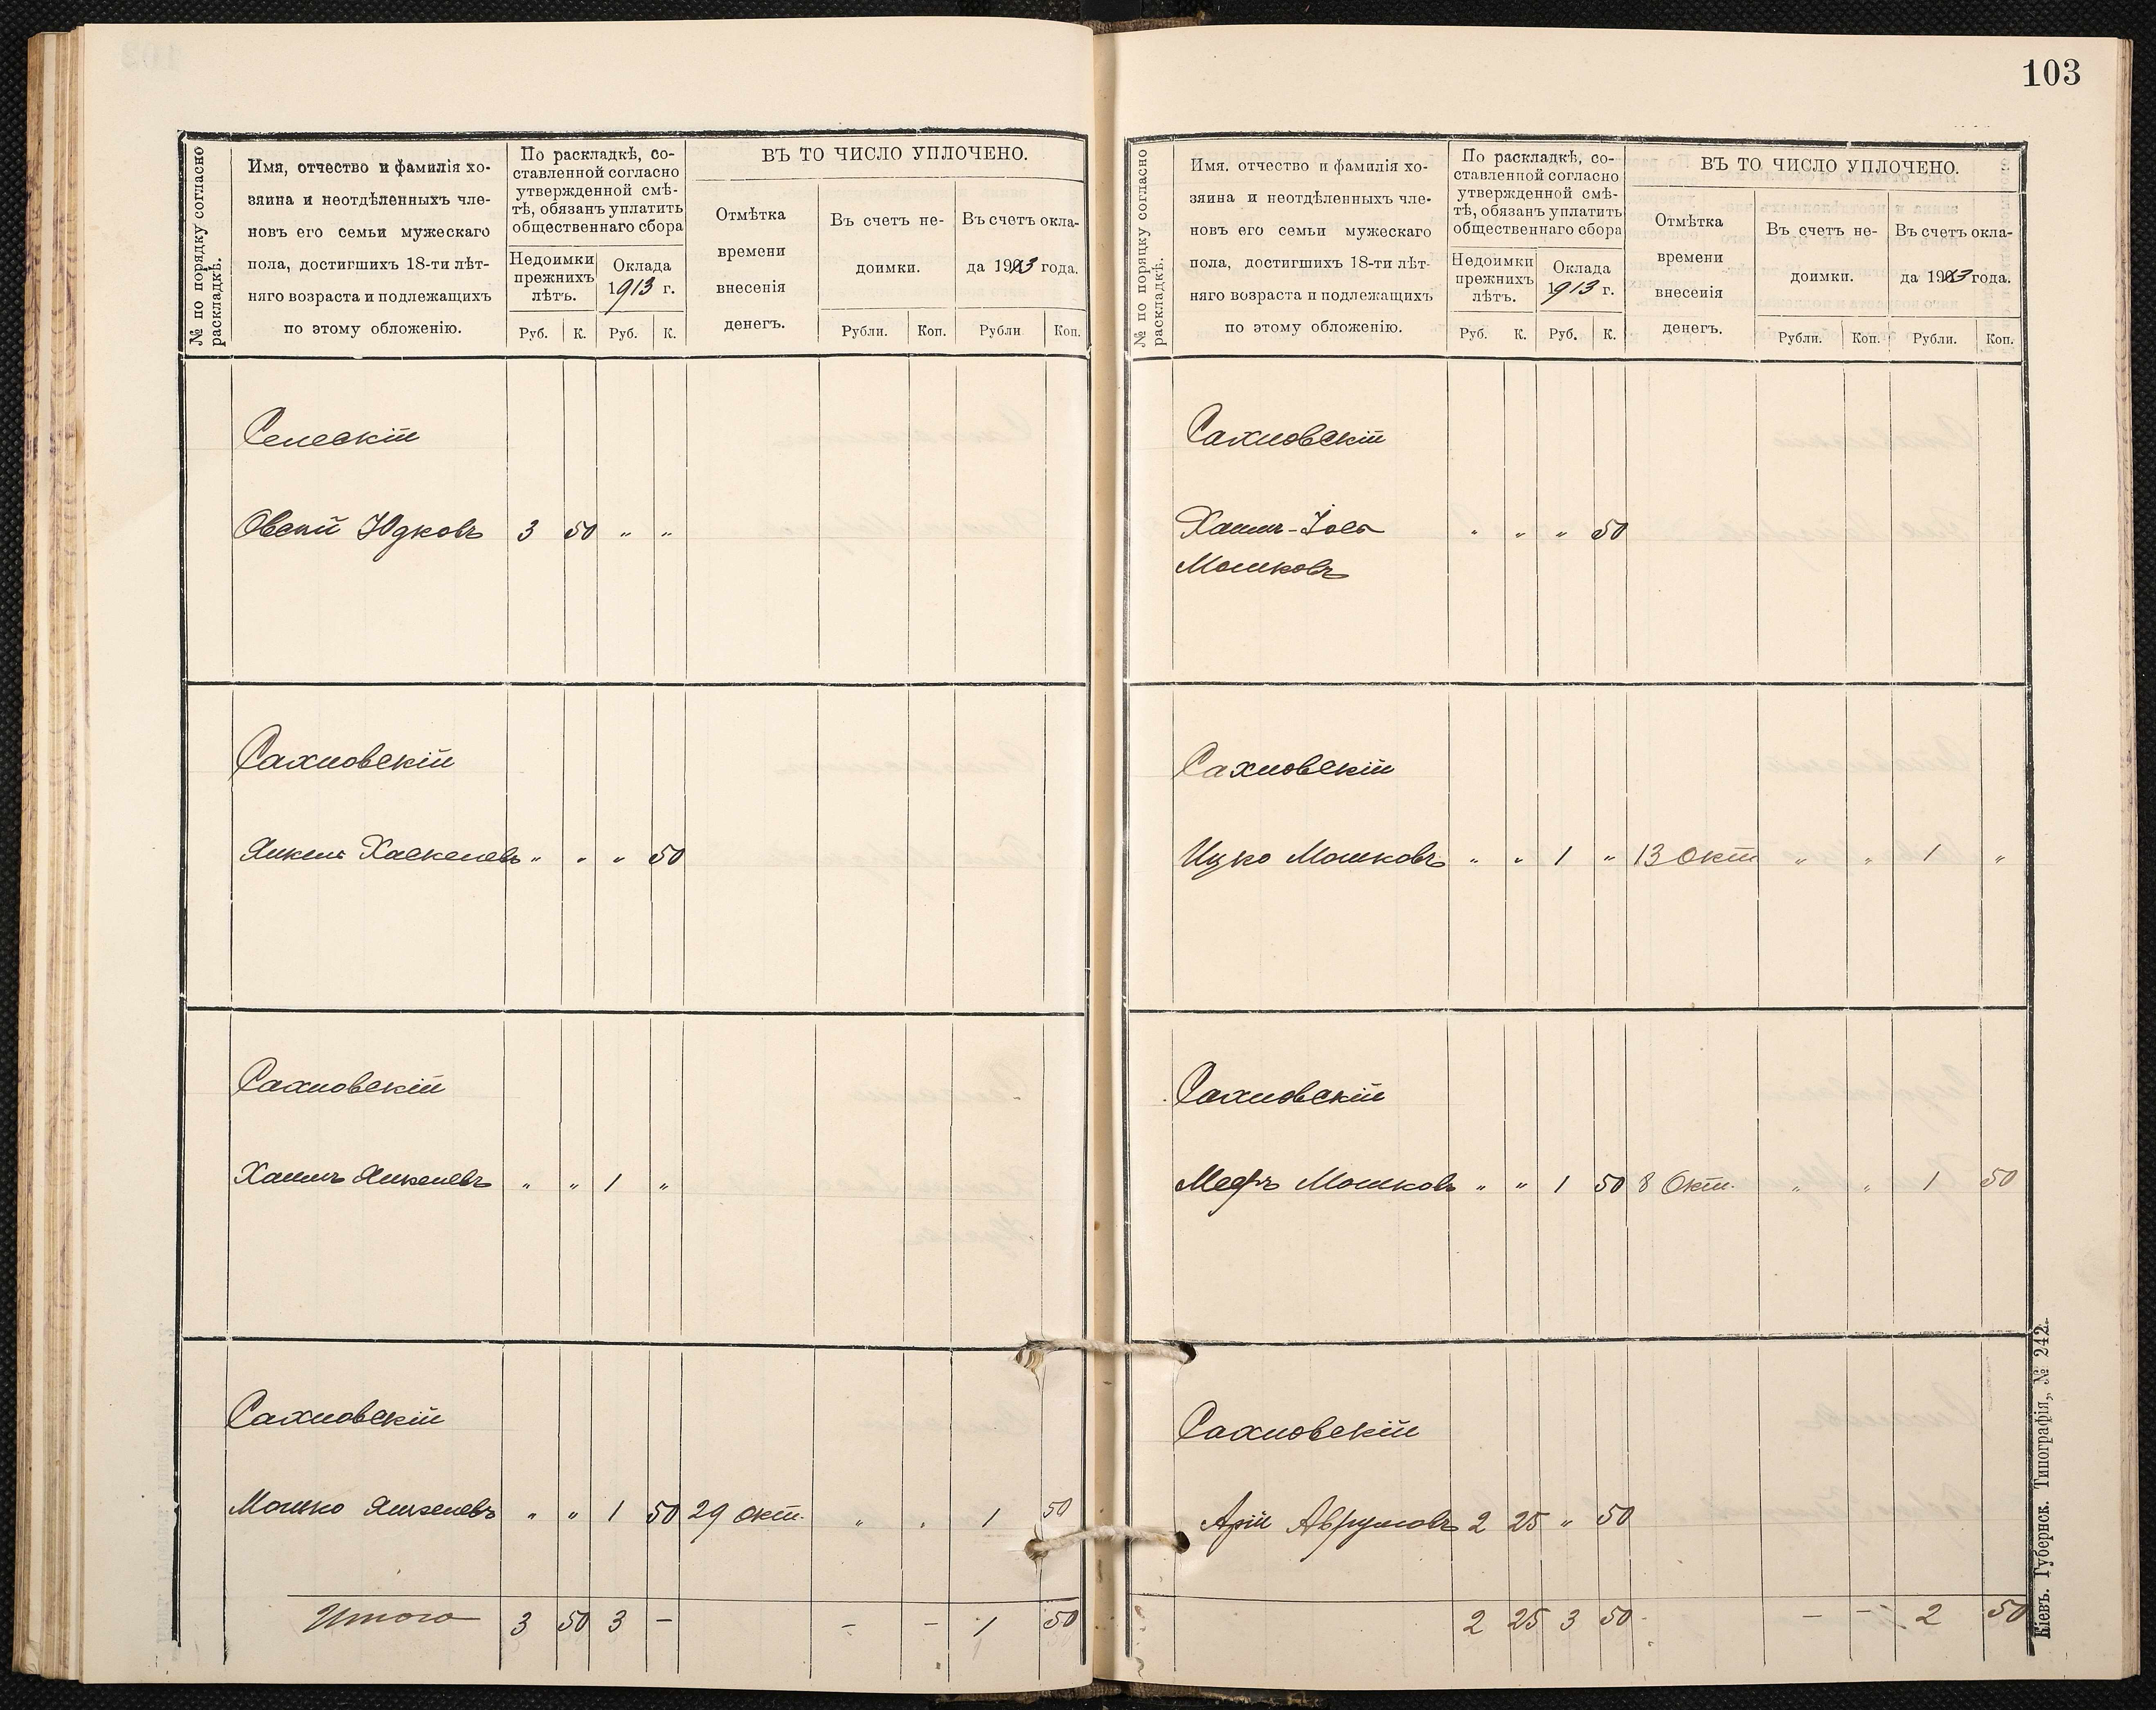 № по порядку согласно
раскладкѣ.
Имя, отчество и фамилія хо-
зяина и неотдѣленныхъ чле-
новъ его семьи мужескаго
пола, достигшихъ 18-ти лѣт-
няго возраста и подлежащихъ
по этому обложенію.
По раскладкѣ, со-
ставленной согласно
утвержденной смѣ-
тѣ, обязанъ уплатить
общественнаго сбора
Недоимки
прежнихъ
лѣтъ.
Оклада
1913 г.
Руб. К. Руб. К.
ВЪ ТО ЧИСЛО УПЛОЧЕНО.
Отмѣтка
времени
внесенія
денегъ.
Въ счетъ не-
доимки.
Въ счетъ окла-
да 1913 года.
Рубли. Коп. Рубли Коп.
Селескій
Овсей Юдковъ 3 50 " "
Сахновскій
Янкель Хаскелевъ " " " 50
Сахновскій
Хаимъ Янкелевъ " " 1 "
Сахновскій
Мошко Янкелевъ " " 1 50 29 Окт. " " 1 50
Итого 3 50 3 — — — 1 50
103
№ по порядку согласно
раскладкѣ.
Имя. отчество и фамилія хо-
зяина и неотдѣленныхъ чле-
новъ его семьи мужескаго
пола, достигшихъ 18-ти лѣт-
няго возраста и подлежащихъ
по этому обложенію.
По раскладкѣ, со-
ставленной согласно
утвержденной смѣ-
тѣ, обязанъ уплатить
общественнаго сбора
Недоимки
прежнихъ
лѣтъ.
Оклада
1913 г.
Руб. К. Руб. К.
ВЪ ТО ЧИСЛО УПЛОЧЕНО.
Отмѣтка
времени
внесенія
денегъ.
Въ счетъ не-
доимки.
Въ счетъ окла-
да 1913 года.
Рубли. Коп. Рубли. Коп.
Сахновскій
Хаимъ-Іось " " " 50
Мошковъ
Сахновскій
Ицко Мошковъ " " 1 " 13 Окт " " 1 "
Сахновскій
Мееръ Мошковъ " " 1 50 8 Окт. " " 1 50
Сахновскій
Арій Аврумовъ 2 25 " 50
2 25 3 50 — — 2 50
Кіевъ. Губернск. Типографія,, № 242.